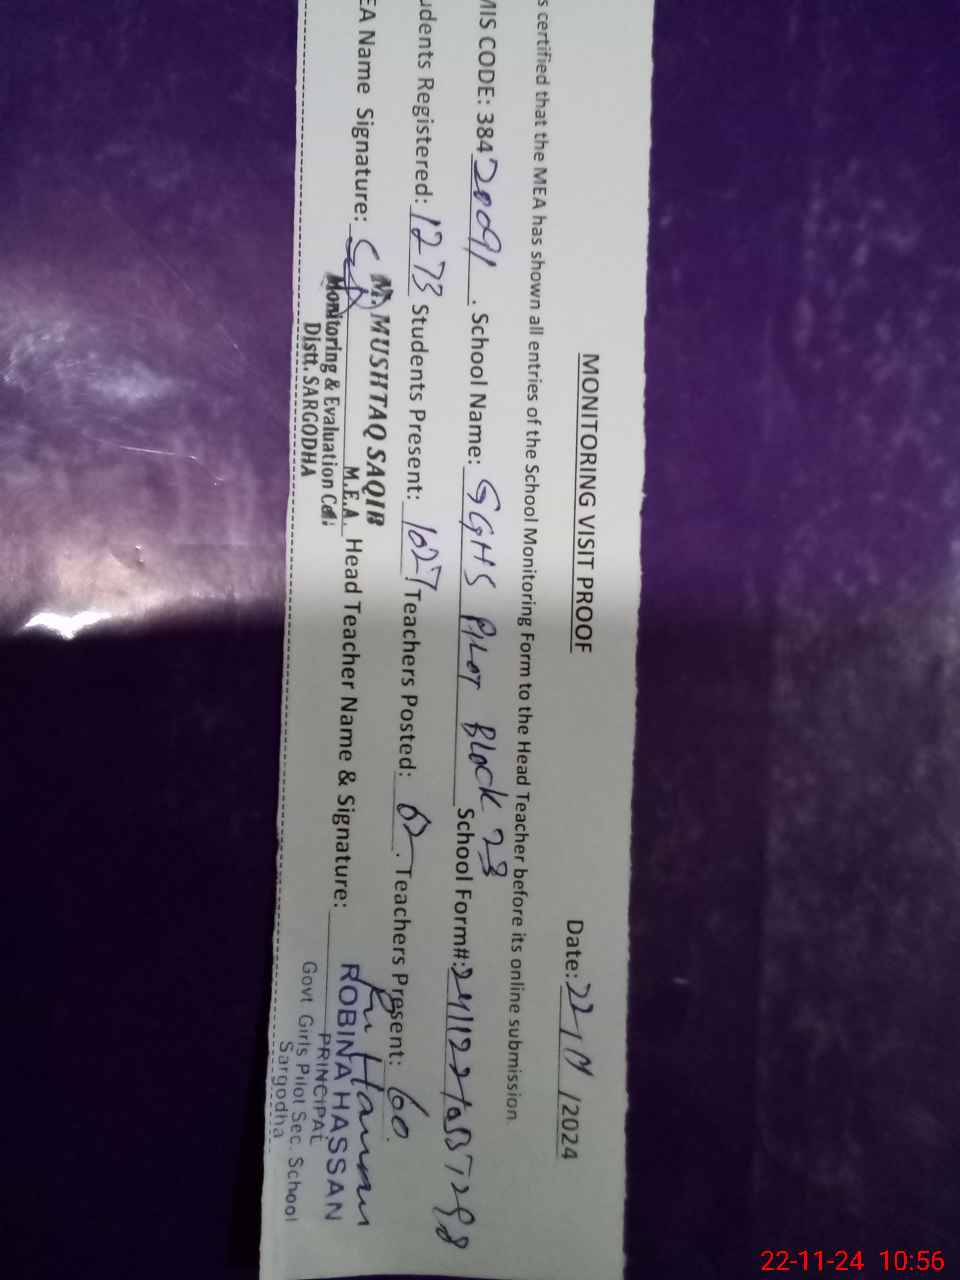 MONITORING VISIT PROOF
Date: 22/11/2024
s certified that the MEA has shown all entries of the School Monitoring Form to the Head Teacher before its online submission
MIS CODE: 38420091. School Name: GGHS PILOT BLOCK 23 School Form#:
udents Registered: 1273 Students Present: 1027 Teachers Posted: 62. Teachers Present: 60.
EA Name Signature: Head Teacher Name & Signature:
M. MUSHTAQ SAQIB
M.E.A.
Monitoring & Evaluation Cell:
Distt. SARGODHA
ROBINA HASSAN
PRINCIPAL
Govt Girls Pilot Sec. School
Sargodha
22-11-24 10:56